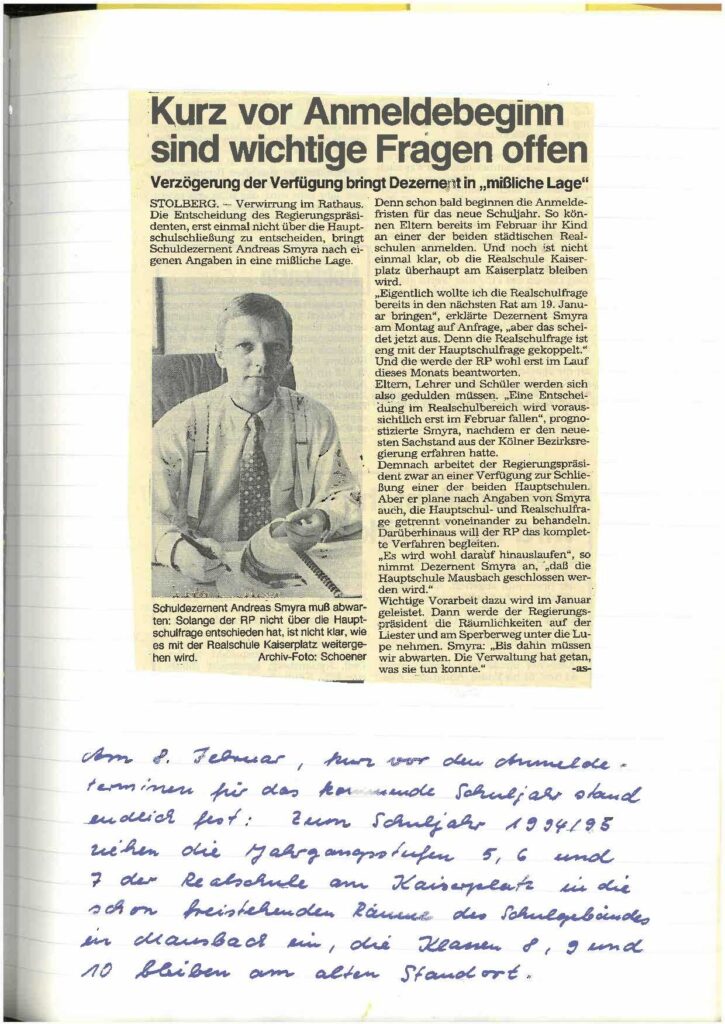 Kurz vor Anmeldebeginn
sind wichtige Fragen offen
Verzögerung der Verfügung bringt Dezernent in „mißliche Lage“
STOLBERG. – Verwirrung im Rathaus.
Die Entscheidung des Regierungspräsi-
denten, erst einmal nicht über die Haupt-
schulschließung zu entscheiden, bringt
Schuldezernent Andreas Smyra nach ei-
genen Angaben in eine mißliche Lage.
Schuldezernent Andreas Smyra muß abwar-
ten: Solange der RP nicht über die Haupt-
schulfrage entschieden hat, ist nicht klar, wie
es mit der Realschule Kaiserplatz weiterge-
hen wird. Archiv-Foto: Schoener
Denn schon bald beginnen die Anmelde-
fristen für das neue Schuljahr. So kön-
nen Eltern bereits im Februar ihr Kind
an einer der beiden städtischen Real-
schulen anmelden. Und noch ist nicht
einmal klar, ob die Realschule Kaiser-
platz überhaupt am Kaiserplatz bleiben
wird.
„Eigentlich wollte ich die Realschulfrage
bereits in den nächsten Rat am 19. Janu-
ar bringen“, erklärte Dezernent Smyra
am Montag auf Anfrage, „aber das schei-
det jetzt aus. Denn die Realschulfrage ist
eng mit der Hauptschulfrage gekoppelt.“
Und die werde der RP wohl erst im Lauf
dieses Monats beantworten.
Eltern, Lehrer und Schüler werden sich
also gedulden müssen. „Eine Entschei-
dung im Realschulbereich wird voraus-
sichtlich erst im Februar fallen“, progno-
stizierte Smyra, nachdem er den neue-
sten Sachstand aus der Kölner Bezirksre-
gierung erfahren hatte.
Demnach arbeitet der Regierungspräsi-
dent zwar an einer Verfügung zur Schlie-
ßung einer der beiden Hauptschulen.
Aber er plane nach Angaben von Smyra
auch, die Hauptschul- und Realschulfra-
ge getrennt voneinander zu behandeln.
Darüberhinaus will der RP das komplet-
te Verfahren begleiten.
„Es wird wohl darauf hinauslaufen“, so
nimmt Dezernent Smyra an, „daß die
Hauptschule Mausbach geschlossen wer-
den wird.“
Wichtige Vorarbeit dazu wird im Januar
geleistet. Dann werde der Regierungs-
präsident die Räumlichkeiten auf der
Liester und am Sperberweg unter die Lu-
pe nehmen. Smyra: „Bis dahin müssen
wir abwarten. Die Verwaltung hat getan,
was sie tun konnte.“ -as-
Am 8. Februar, kurz vor den Anmelde-
terminen für das kommende Schuljahr stand
endlich fest: Zum Schuljahr 1994/95
ziehen die Jahrgangsstufen 5, 6 und
7 der Realschule am Kaiserplatz in die
schon freistehenden Räume des Schulgebäudes
in Mausbach ein, die Klassen 8, 9 und
10 bleiben am alten Standort.